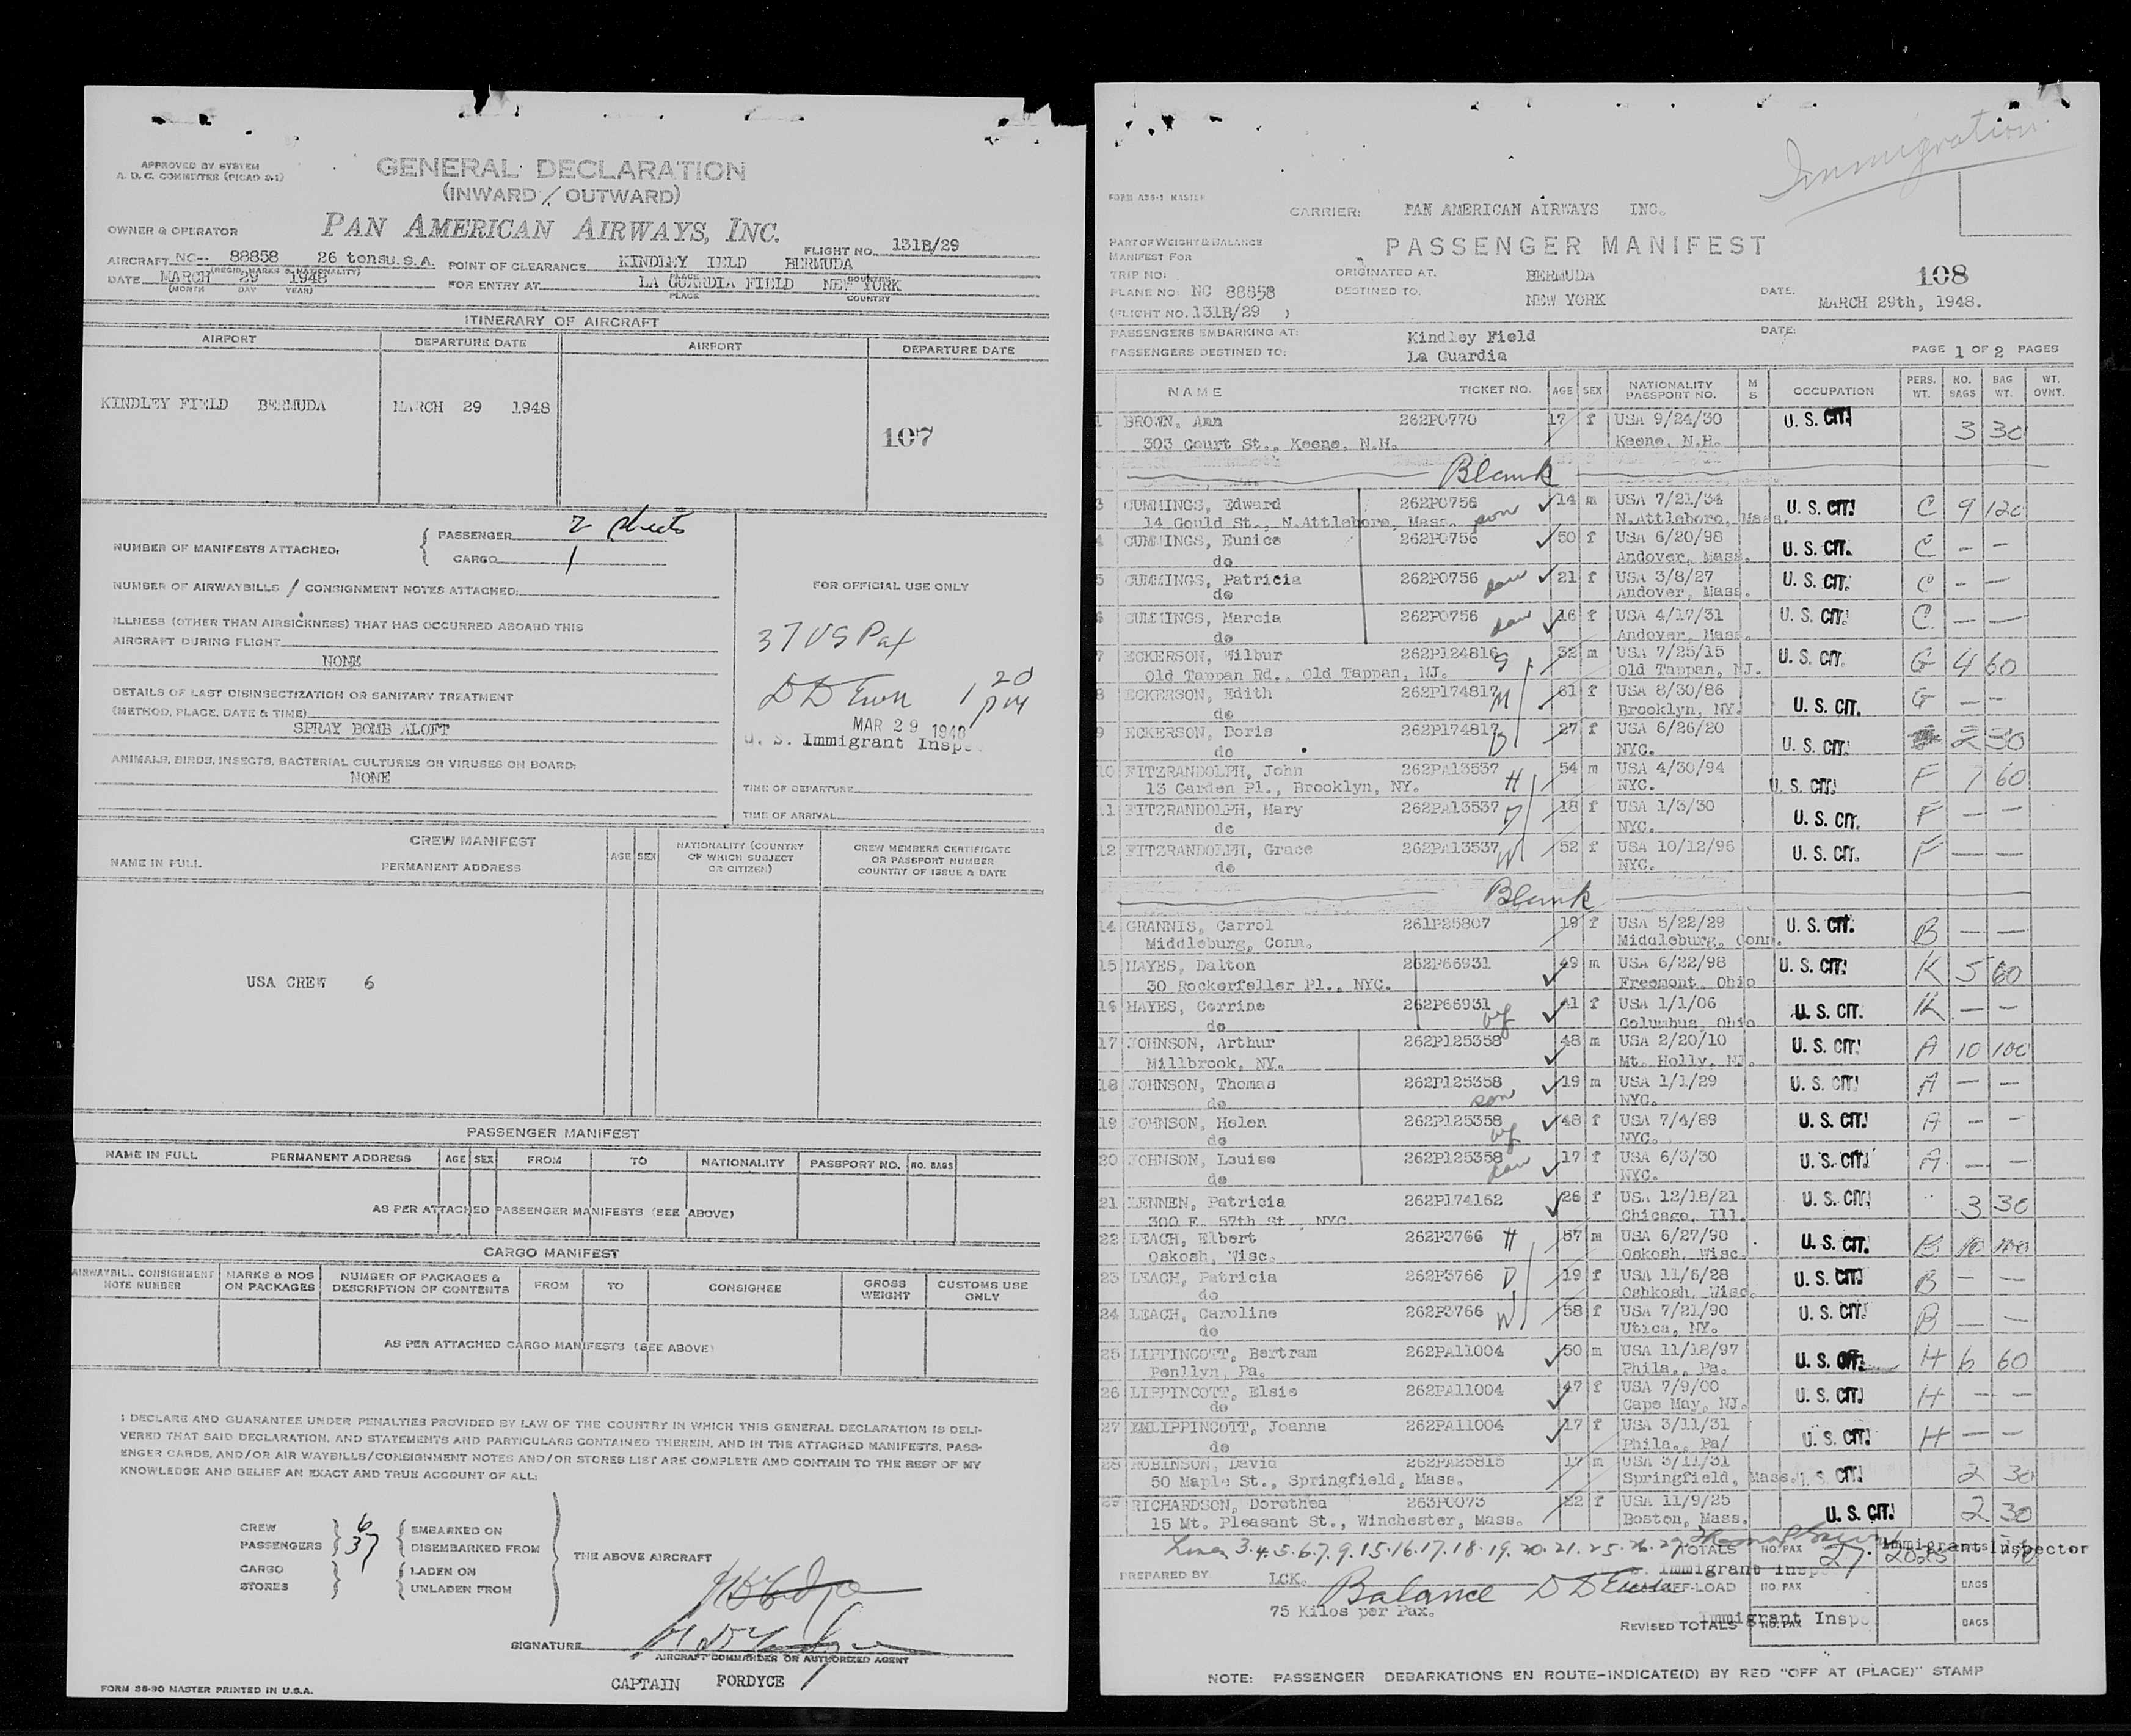 APPROVED BY SYSTEM
A. D. C. COMMITTEE (PICAO 9.1)
GENERAL DECLARATION
(INWARD / OUTWARD)
OWNER & OPERATOR PAN AMERICAN AIRWAYS, INC.
FLIGHT NO. 131B/29
AIRCRAFT NC-- 88858 26 tons U.S.A. POINT OF CLEARANCE KINDLEY IELD BERMUDA
(REGIS. MARKS & NATIONALITY) PLACE COUNTRY
DATE MARCH 29 1948 FOR ENTRY AT LA GUARDIA FIELD NEW YORK
(MONTH DAY YEAR) PLACE COUNTRY
ITINERARY OF AIRCRAFT
AIRPORT DEPARTURE DATE AIRPORT DEPARTURE DATE
KINDLEY FIELD BERMUDA MARCH 29 1948
107
NUMBER OF MANIFESTS ATTACHED: PASSENGER 2 sheets
CARGO 1
NUMBER OF AIRWAYBILLS / CONSIGNMENT NOTES ATTACHED:
ILLNESS (OTHER THAN AIRSICKNESS) THAT HAS OCCURRED ABOARD THIS
AIRCRAFT DURING FLIGHT
NONE
DETAILS OF LAST DISINSECTIZATION OR SANITARY TREATMENT
(METHOD, PLACE, DATE & TIME)
SPRAY BOMB ALOFT
ANIMALS, BIRDS, INSECTS, BACTERIAL CULTURES OR VIRUSES ON BOARD:
NONE
FOR OFFICIAL USE ONLY
37 US Pax
1 20 PM
MAR 29 1948
U. S. Immigrant Inspe
TIME OF DEPARTURE
TIME OF ARRIVAL
CREW MANIFEST
NAME IN FULL PERMANENT ADDRESS AGE SEX NATIONALITY (COUNTRY OF WHICH SUBJECT OR CITIZEN) CREW MEMBERS CERTIFICATE OR PASSPORT NUMBER COUNTRY OF ISSUE & DATE
USA CREW 6
PASSENGER MANIFEST
NAME IN FULL PERMANENT ADDRESS AGE SEX FROM TO NATIONALITY PASSPORT NO. NO. BAGS
AS PER ATTACHED PASSENGER MANIFESTS (SEE ABOVE)
CARGO MANIFEST
AIRWAYBILL CONSIGNMENT NOTE NUMBER MARKS & NOS ON PACKAGES NUMBER OF PACKAGES & DESCRIPTION OF CONTENTS FROM TO CONSIGNEE GROSS WEIGHT CUSTOMS USE ONLY
AS PER ATTACHED CARGO MANIFESTS (SEE ABOVE)
I DECLARE AND GUARANTEE UNDER PENALTIES PROVIDED BY LAW OF THE COUNTRY IN WHICH THIS GENERAL DECLARATION IS DELI-
VERED THAT SAID DECLARATION, AND STATEMENTS AND PARTICULARS CONTAINED THEREIN, AND IN THE ATTACHED MANIFESTS, PASS-
ENGER CARDS, AND/OR AIR WAYBILLS/CONSIGNMENT NOTES AND/OR STORES LIST ARE COMPLETE AND CONTAIN TO THE BEST OF MY
KNOWLEDGE AND BELIEF AN EXACT AND TRUE ACCOUNT OF ALL:
CREW 6 EMBARKED ON
PASSENGERS 37 DISEMBARKED FROM
THE ABOVE AIRCRAFT
CARGO LADEN ON
STORES UNLADEN FROM
SIGNATURE
AIRCRAFT COMMANDER OR AUTHORIZED AGENT
CAPTAIN FORDYCE
FORM 36-90 MASTER PRINTED IN U.S.A.
Immigration
CARRIER: PAN AMERICAN AIRWAYS INC.
PART OF WEIGHT & BALANCE
MANIFEST FOR
PASSENGER MANIFEST
TRIP NO: ORIGINATED AT: BERMUDA 108
PLANE NO: NC 88858 DESTINED TO: NEW YORK DATE: MARCH 29th, 1948.
(FLIGHT NO. 131B/29 )
PASSENGERS EMBARKING AT: Kindley Field DATE:
PASSENGERS DESTINED TO: La Guardia PAGE 1 OF 2 PAGES
NAME TICKET NO. AGE SEX NATIONALITY PASSPORT NO. M S OCCUPATION PERS. WT. NO. BAGS BAG WT. WT. OVNT.
1 BROWN, Ann 262P0770 17 f USA 9/24/30 U. S. CIT. 3 30
303 Court St., Keene, N.H. Keene, N.H.
Blank
3 CUMMINGS, Edward 262P0756 14 m USA 7/21/34 U. S. CIT. C 9 120
14 Gould St., N.Attleboro, Mass. son N.Attleboro, Mass.
4 CUMMINGS, Eunice 262P0756 50 f USA 6/20/98 U. S. CIT. C - -
do Andover, Mass.
5 CUMMINGS, Patricia 262P0756 dau 21 f USA 3/8/27 U. S. CIT. C - -
do Andover, Mass.
6 CUMMINGS, Marcia 262P0756 dau 16 f USA 4/17/31 U. S. CIT. C - -
do Andover, Mass.
7 ECKERSON, Wilbur 262P124816 32 m USA 7/25/15 U. S. CIT. G 4 60
Old Tappan Rd., Old Tappan, NJ. Old Tappan, NJ.
8 ECKERSON, Edith 262P174817 M 61 f USA 8/30/86 U. S. CIT. G - -
do Brooklyn, NY.
9 ECKERSON, Doris 262P174817 D 27 f USA 6/26/20 U. S. CIT. 2 30
do NYC.
10 FITZRANDOLPH, John 262PA13537 H 54 m USA 4/30/94 U. S. CIT. F 7 60
13 Garden Pl., Brooklyn, NY. NYC.
11 FITZRANDOLPH, Mary 262PA13537 D 18 f USA 1/3/30 U. S. CIT. F - -
do NYC.
12 FITZRANDOLPH, Grace 262PA13537 W 52 f USA 10/12/96 U. S. CIT. F - -
do NYC.
Blank
14 GRANNIS, Carrol 261P25807 19 f USA 5/22/29 U. S. CIT. B - -
Middleburg, Conn. Middleburg, Conn.
15 HAYES, Dalton 262P66931 49 m USA 6/22/98 U. S. CIT. K 5 60
30 Rockerfeller Pl., NYC. Freemont, Ohio
16 HAYES, Corrine 262P66931 wf 41 f USA 1/1/06 U. S. CIT. K - -
do Columbus, Ohio
17 JOHNSON, Arthur 262P125358 48 m USA 2/20/10 U. S. CIT. A 10 100
Millbrook, NY. Mt. Holly, NJ.
18 JOHNSON, Thomas 262P125358 19 m USA 1/1/29 U. S. CIT. A - -
do son NYC.
19 JOHNSON, Helen 262P125358 wf 48 f USA 7/4/89 U. S. CIT. A - -
do NYC.
20 JOHNSON, Louise 262P125358 dau 17 f USA 6/3/30 U. S. CIT. A - -
do NYC.
21 LENNEN, Patricia 262P174162 26 f USA 12/18/21 U. S. CIT. 3 30
300 E. 57th St., NYC. Chicago, Ill.
22 LEACH, Elbert 262P3766 H 57 m USA 6/27/90 U. S. CIT. B 10 100
Oskosh, Wisc. Oskosh, Wisc.
23 LEACH, Patricia 262P3766 D 19 f USA 11/6/28 U. S. CIT. B - -
do Oshkosh, Wisc.
24 LEACH, Caroline 262P3766 W 58 f USA 7/21/90 U. S. CIT. B - -
do Utica, NY.
25 LIPPINCOTT, Bertram 262PA11004 50 m USA 11/18/97 U. S. CIT. H 6 60
Penllyn, Pa. Phila., Pa.
26 LIPPINCOTT, Elsie 262PA11004 47 f USA 7/9/00 U. S. CIT. H - -
do Cape May, NJ.
27 LIPPINCOTT, Joanna 262PA11004 17 f USA 3/11/31 U. S. CIT. H - -
do Phila., Pa/
28 ROBINSON, David 262PA25815 17 m USA 3/11/31 U. S. CIT. 2 30
50 Maple St., Springfield, Mass. Springfield, Mass.
29 RICHARDSON, Dorothea 263P0073 22 f USA 11/9/25 U. S. CIT. 2 30
15 Mt. Pleasant St., Winchester, Mass. Boston, Mass.
Lines 3.4.5.6.7.9.15.16.17.18.19.20.21.25.26.27
TOTALS NO. PAX 27 2025 Immigrant Inspector
PREPARED BY LCK. Balance
Immigrant Inspe
OFF-LOAD NO. PAX BAGS
75 Kilos per Pax.
REVISED TOTALS NO. PAX Immigrant Inspe BAGS
NOTE: PASSENGER DEBARKATIONS EN ROUTE-INDICATE(D) BY RED "OFF AT (PLACE)" STAMP